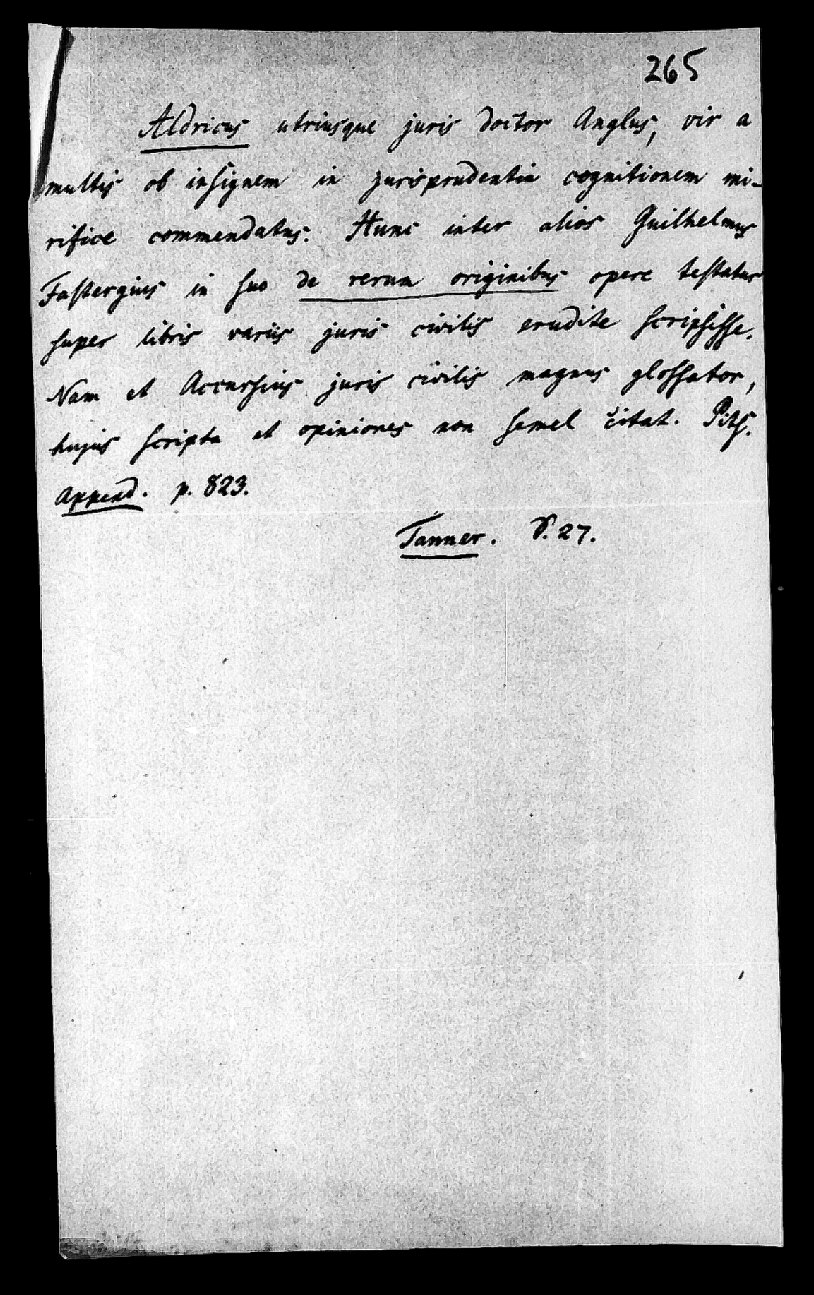 265
Aldricus utriusque juris doctor Anglus, vir a
multis ob insignem in jurisprudentia cognitionem mi-
rifice commendatus. Hunc inter alios Guilhelmus
Fastergius in suo de rerum originibus opere testatur
super libris variis juris civilis erudite scripsisse.
Nam et Accursius juris civilis magnus glossator,
hujus scripta et opiniones non semel citat. Pits.
Append. p. 823.
Tanner. P. 27.